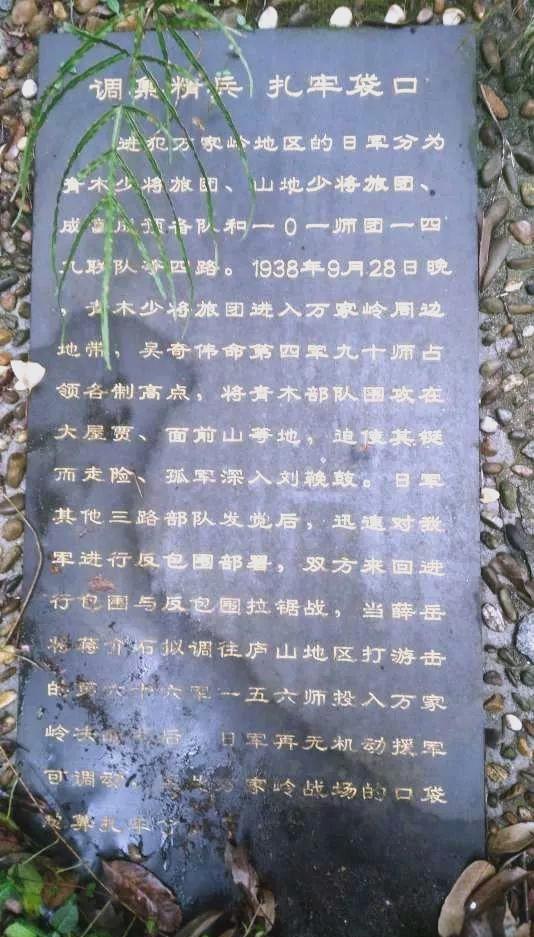 调集精兵 扎牢袋口
进犯万家岭地区的日军分为
青木少将旅团、山地少将旅团、
成富所预备队和一0一师团一四
九联队等四路。1938年9月28日晚
，青木少将旅团进入万家岭周边
地带，吴奇伟命第四军九十师占
领各制高点，将青木部队围攻在
大屋贾、面前山等地，迫使其铤
而走险、孤军深入刘鞔鼓。日军
其他三路部队发觉后，迅速对我
军进行反包围部署，双方来回进
行包围与反包围拉锯战，当薛岳
将蒋介石拟调往庐山地区打游击
的第六十六军一五六师投入万家
岭决 后 日军再无机动援军
可调动， 万家岭战场的口袋
扎牢